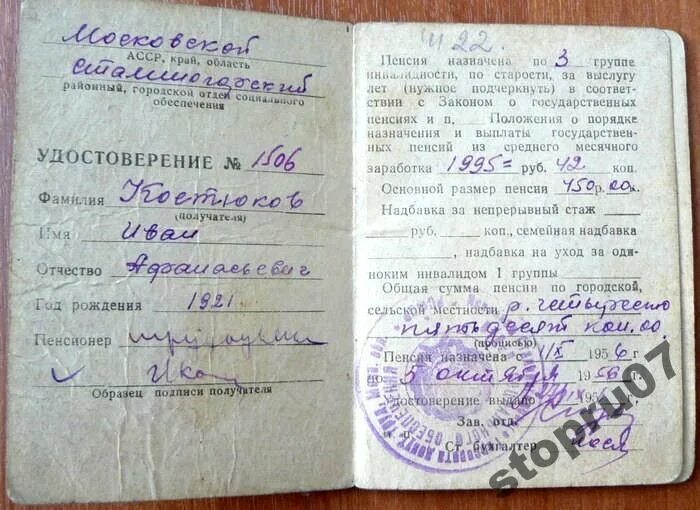 Московской
АССР, край, область
Сталиногорский
районный, городской отдел социального
обеспечения
УДОСТОВЕРЕНИЕ № 1506
Фамилия Костюков
(получателя)
Имя Иван
Отчество Афанасьевич
Год рождения 1921
Пенсионер
Образец подписи получателя
22
Пенсия назначена по 3 группе
инвалидности, по старости, за выслугу
лет (нужное подчеркнуть) в соответ-
ствии с Законом о государственных
пенсиях и п. Положения о порядке
назначения и выплаты государствен-
ных пенсий из среднего месячного
заработка 1995= руб. 42 коп.
Основной размер пенсии 450 р. 00 к.
Надбавка за непрерывный стаж
руб. коп., семейная надбавка
, надбавка на уход за оди-
ноким инвалидом 1 группы
Общая сумма пенсии по городской,
сельской местности р. четыреста
пятьдесят коп. 00
(прописью)
Пенсия назначена 1956 г
по 5 октября 195
Удостоверение выдано 195
Зав. отд.
м. п.
Ст. бухгалтер
stopru07